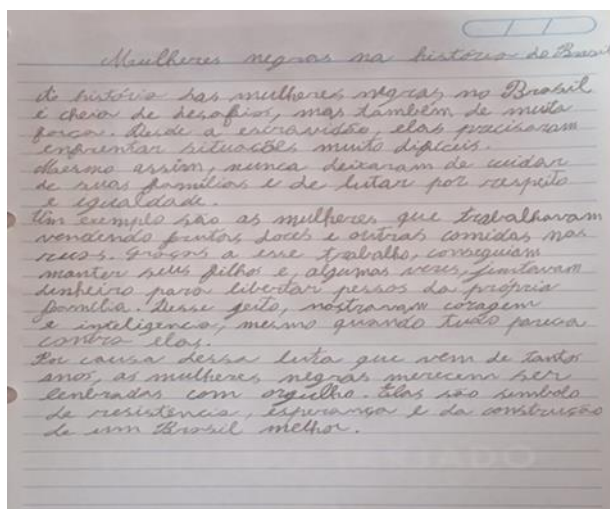 Mulheres negras na história do Brasil
A história das mulheres negras no Brasil
é cheia de desafios, mas também de muita
força. Desde a escravidão, elas precisaram
enfrentar situações muito difíceis.
Mesmo assim, nunca deixaram de cuidar
de suas famílias e de lutar por respeito
e igualdade.
Um exemplo são as mulheres que trabalhavam
vendendo frutas, doces e outras comidas nas
ruas. Graças a esse trabalho, conseguiam
manter seus filhos e, algumas vezes, juntavam
dinheiro para libertar pessoas da própria
família. Desse jeito, mostravam coragem
e inteligência, mesmo quando tudo parecia
contra elas.
Por causa dessa luta que vem de tantos
anos, as mulheres negras merecem ser
lembradas com orgulho. Elas são símbolo
de resistência, esperança e da construção
de um Brasil melhor.